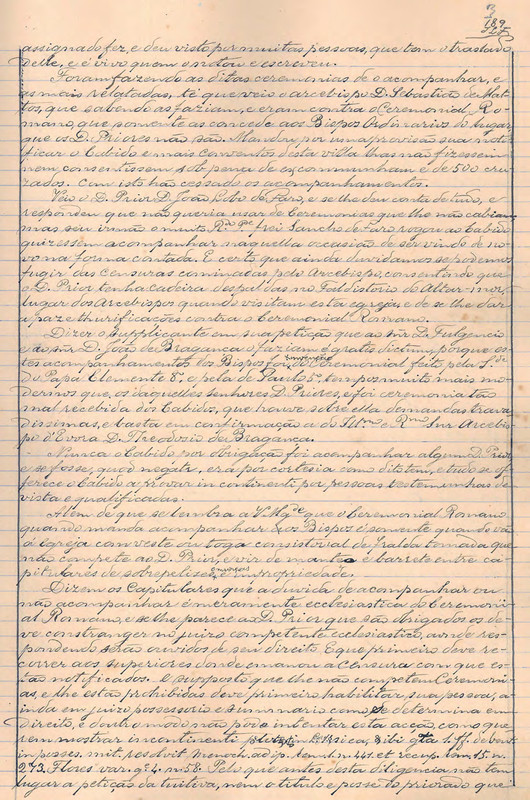 189
assignado fez, e deu visto por muitas pessoas, que tem o traslado
delle, e é vivo quem o notou e escreveu.
Foram fazendo as ditas ceremonias de o acompanhar, e
as mais relatadas, té que veio o arcebispo D. Sebastião de Mat-
tos, que sabendo as faziam, e eram contra o Ceremonial Ro-
mano, que somente as concede aos Bispos Ordinarios do lugar
que os D. Priores não são. Mandou por uma provisão sua noti-
ficar o Cabido e mais Conventos desta villa lhas não fizessem
nem consentissem sob pena de excommunham e de 500 cru-
zados. Com isto hão cessado os acompanhamentos.
Veio o D. Prior D. João Lobo de Faro, e se lhe deu conta de tudo, e
respondeu que não queria usar de Ceremonias que lhe não cabiam
mas seu irmão o muito R.do P.e frei Sancho de Faro, rogou ao Cabido
quizessem acompanhar naquella occasião de ser vindo de no-
vo na forma contada. E certo que ainda duvidamos se podemos
fugir das Censuras cominadas pelo Arcebispo, consentindo que
o D. Prior tenha cadeira despaldas no Faldistorio do Altar-mór,
lugar dos Arcebispos quando visitam esta egreja, e de se lhe dar
a paz e thurificações contra o Ceremonial Romano.
Dizer o supplicante em sua petição que ao snr D. Fulgencio
e ao snr D. João de Bragança o faziam é gratis dictum, porque es-
tes acompanhamentos dos Bispos foi invenção do Ceremonial feito pela S.de
do Papa Clemente 8.º e pela de Paulo 5.º, tempos muito mais mo-
dernos que os daquelles senhores D. Priores, e foi ceremonia tão
mal recebida dos Cabidos, que houve sobre ella demandas trava-
dissimas, e basta em confirmação a do Ill.mo e R.mo Snr Arcebis-
po d'Evora D. Theodosio de Bragança.
Nunca o Cabido por obrigação foi acompanhar algum D. Prior
e se fosse, quod negatur, era por cortesia como dito tem, e tudo se of-
ferece o Cabido a provar in continenti por pessoas testemunhas de
vista e qualificadas.
Alem de que se lembra a V. Mg.de que o Ceremonial Romano
quando manda acompanhar aos Bispos é somente quando vão
á Igreja com veste ou toga consistorial de fralda tomada que
não compete ao D. Prior, e vir de manto e barrete entre ca-
pitulares de sobrepelises e murças é impropriedade.
Dizem os Capitulares que a duvida de acompanhar ou
não acompanhar é meramente ecclesiastica do Ceremoni-
al Romano, e se lhe parece ao D. Prior que são obrigados os de-
ve constranger no juizo competente ecclesiastico, aonde res-
pondendo serão ouvidos de seu direito. E que primeiro deve re-
correr aos superiores donde emanou a Censura com que es-
tão notificados. E supposto que lhe não competem Ceremoni-
as, e lhe estão prohibidas deve primeiro habilitar, sua pessoa, a-
inda em juizo possessorio e summario como se determina em
Direito, e doutro modo não póde intentar esta acção, como que-
rem mostrar in continenti
in posses. mit. resolvit Menoch. ad ip. rem. n. 441. et recup. rem. 15. n.
273. Flores var. q. 4. n. 58. Pelo que antes desta diligencia não tem
lugar a petição da tuitiva, nem o titulo e posse do priorado que